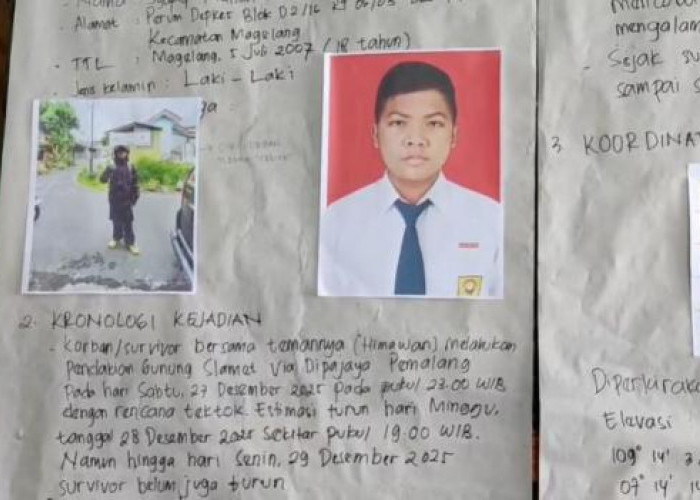 Alamat : Perum Depkes Blok D2/16
Kecamatan Magelang
TTL : Magelang, 5 Juli 2007 (18 tahun)
Jenis kelamin : Laki - Laki
2. KRONOLOGI KEJADIAN
- Korban/survivor bersama temannya (Himawan) melakukan
Pendakian Gunung Slamet via Dipajaya Pemalang
Pada hari Sabtu, 27 Desember 2025 Pada pukul 23.00 WIB
dengan rencana tektok. Estimasi turun hari Minggu,
tanggal 28 Desember 2025 Sekitar pukul 19.00 WIB.
Namun hingga hari Senin, 29 Desember 2025
survivor belum juga turun
mengalam
- Sejak su
sampai s
3 KOORDINAT
Diperkiraka
Elevasi
109° 14'
07° 14'